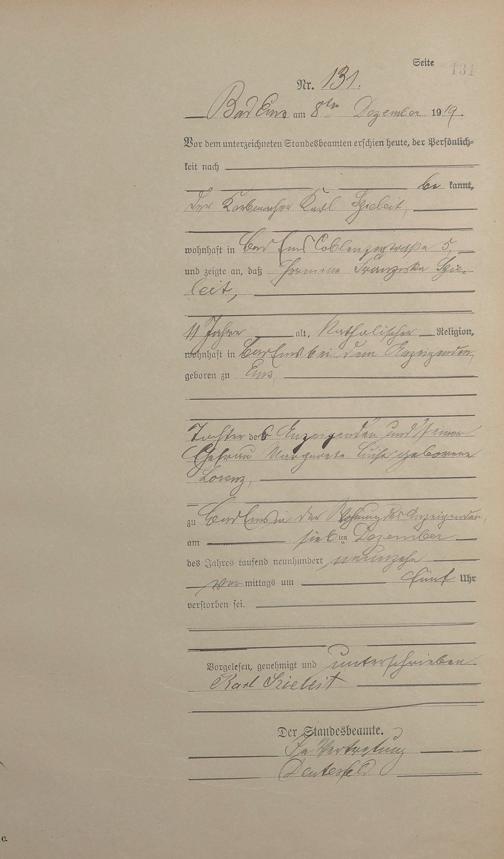 Seite 131
Nr. 131.
Bad Ems am 8ten Dezember 1919.
Vor dem unterzeichneten Standesbeamten erschien heute, der Persönlich-
keit nach
be kannt,
der Korbmacher Karl
wohnhaft in Bad Ems Coblenzerstraße 5,
und zeigte an, daß Hermine Franziska
leit,
11 Jahre alt, Katholischer Religion,
wohnhaft in Bad Ems bei dem Anzeigenden,
geboren zu Ems
Tochter des Anzeigenden und seiner
Ehefrau Margarete geborene
Lorenz,
zu Bad Ems in der Wohnung des Anzeigenden,
am sieb ten Dezember
des Jahres tausend neunhundert neunzehn
vor mittags um fünf Uhr
verstorben sei.
Vorgelesen, genehmigt und unterschrieben
Karl
Der Standesbeamte.
In Vertretung
c.